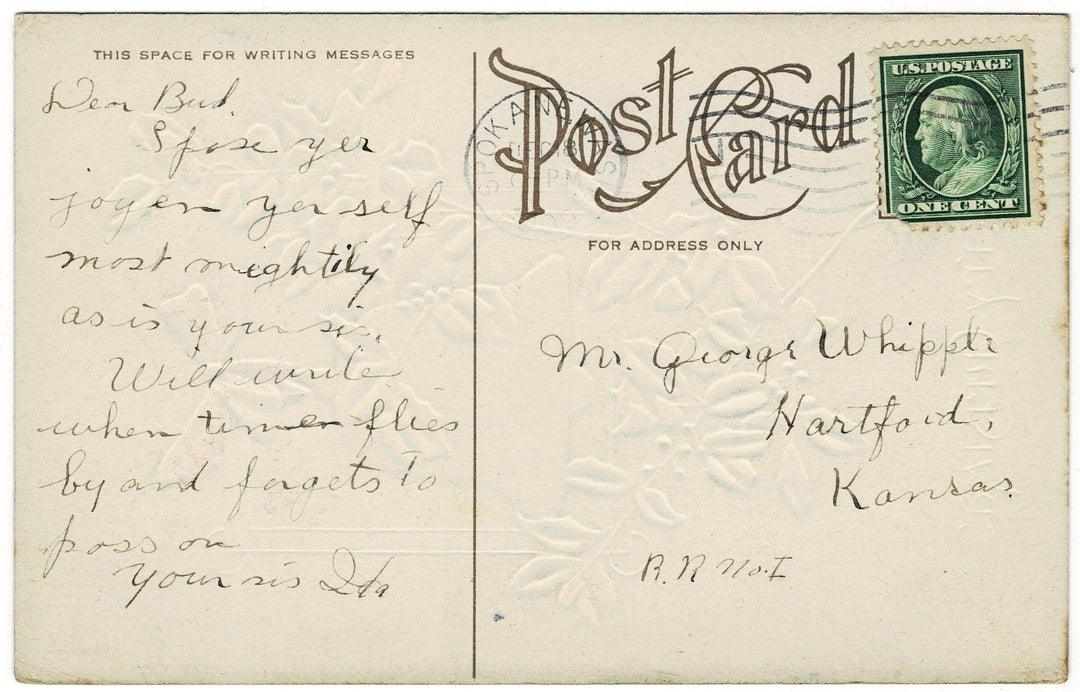 THIS SPACE FOR WRITING MESSAGES
Dear Bud,
Spose yer
joyen yer self
most mightily
as is your sis.
Will write
when time flies
by and forgets to
pass on
Your sis Ida
Post Card
SPOKANE
PM
U.S. POSTAGE
ONE CENT
FOR ADDRESS ONLY
Mr. George Whipple
Hartford,
Kansas.
R. R. No. 1